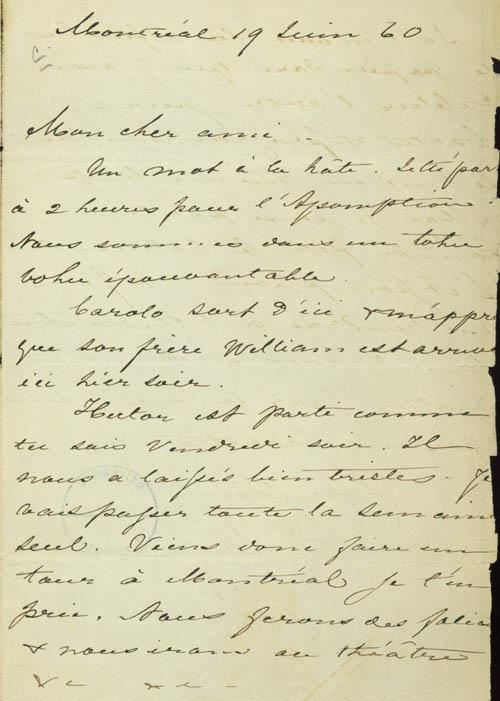 Montréal 19 Juin 60
Mon cher ami.
Un mot à la hâte. part
à 2 heures pour l'Assomption.
Nous sommes dans un tohu
bohu épouvantable.
Carolo sort d'ici & m'appre
que son frère William est arrivé
ici hier soir.
Hector est parti comme
tu sais Vendredi soir. Il
nous a laissés bien tristes. Je
vais passer toute la semaine
seul. Viens donc faire un
tour à Montréal je t'en
prie. Nous ferons des folies
& nous irons au théâtre
&c &c -